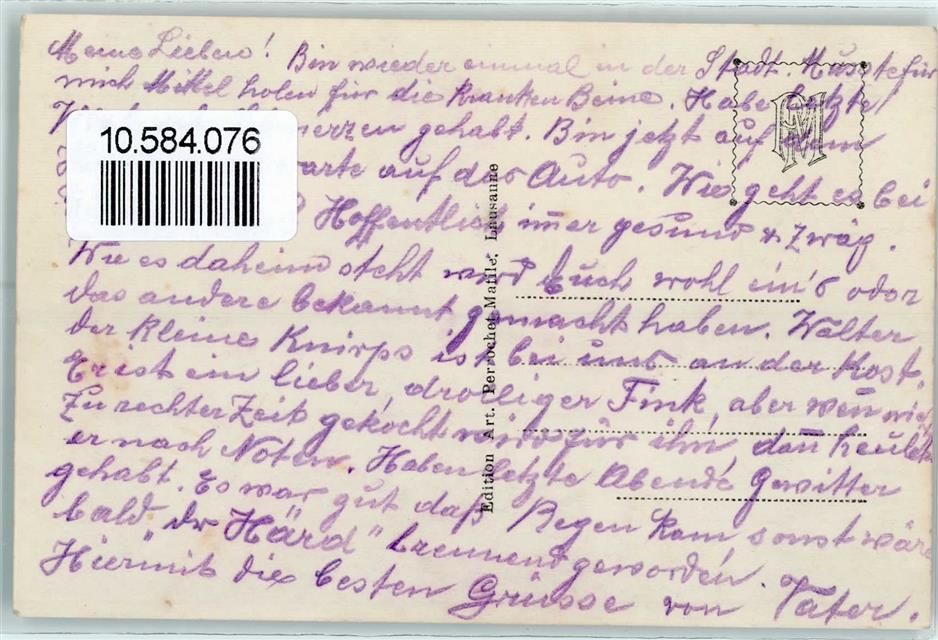 Meine Lieben! Bin wieder einmal in der Stadt. Musste für
mich Mittel holen für die kranken Beine. Habe letzte
gehabt. Bin jetzt auf dem
warte auf das Auto. Wie geht es bei
Hoffentlich im̄er gesund & zwäg.
Wie es daheim steht wird Euch wohl ein's oder
das andere bekannt gemacht haben. Walter
der kleine Knirps ist bei uns an der Kost.
Er ist ein lieber, drolliger Fink, aber wen̄ nicht
zu rechter Zeit gekocht wird für ihn, dan̄ heulet
er nach Noten. Haben letzte Abende Gewitter
gehabt. Es war gut daß Regen kam sonst wäre
bald "dr Härd" brennend geworden.
Hiermit die besten Grüsse von Vater.
10.584.076
Edition Art. Perrochet-Matile, Lausanne
PM